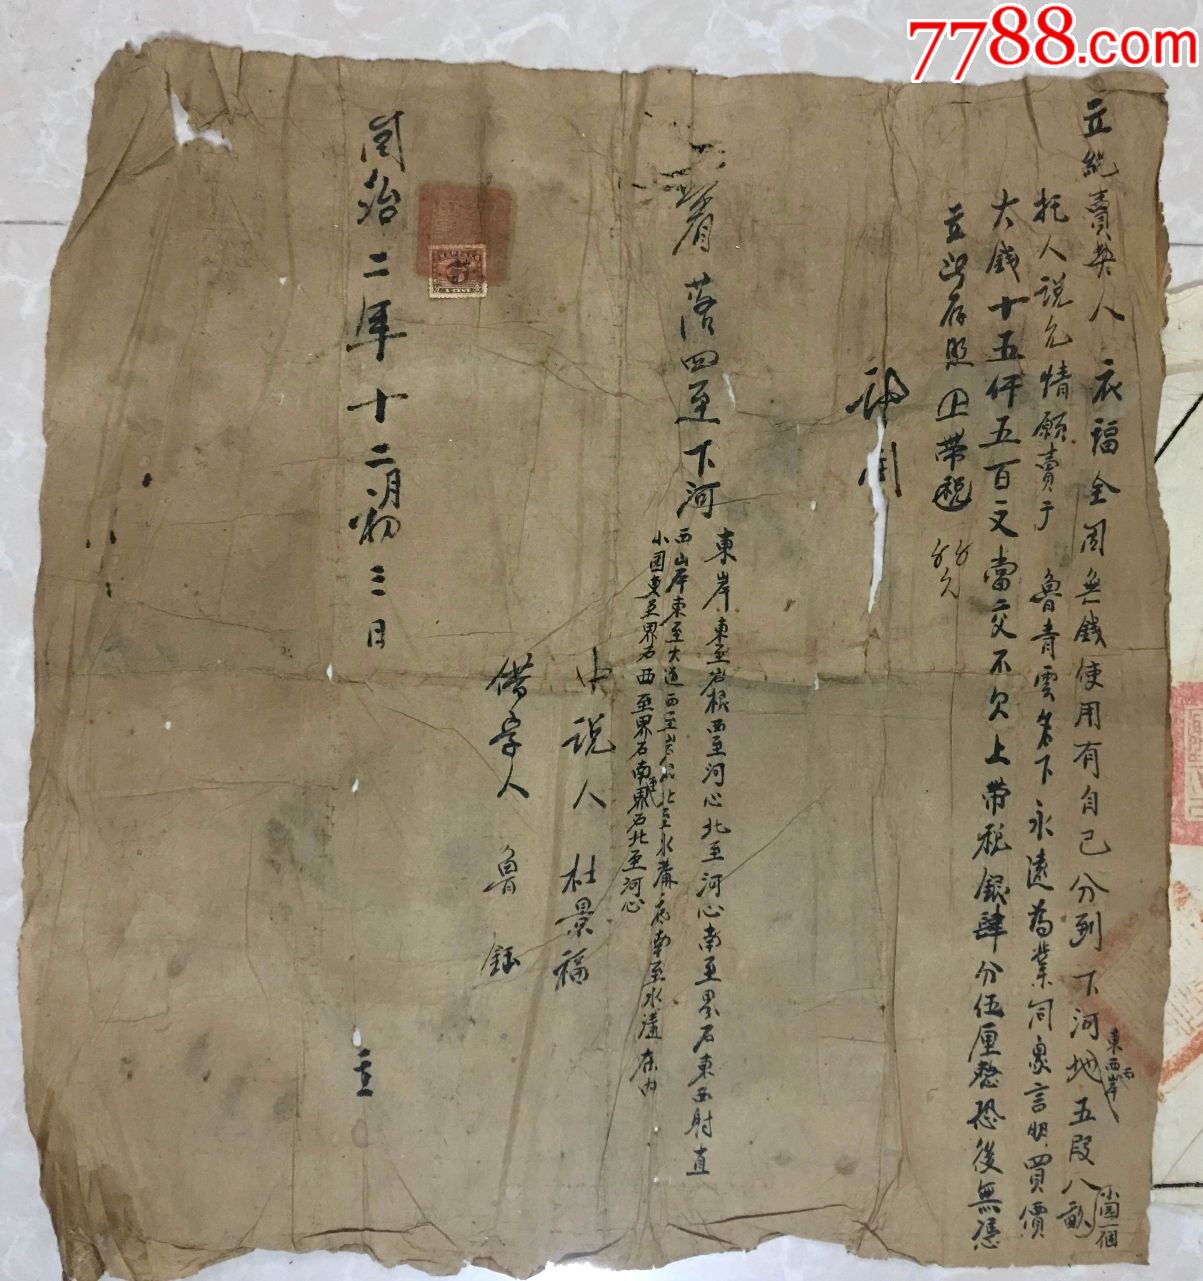 7788.com
立絶賣契人 衣福全 因無錢使用有自己分到下河地五段八畝
東西兩岸
小園一個
托人說允情願賣于 魯青雲名下永遠為業同衆言明買價
大錢十五仟五百文當交不欠上帶税銀肆分伍厘整恐後無憑
立此存照 上帶税
計開
着落四至下河
東岸東至岩根西至河心北至河心南至界石東西射直
西山岸東至大道西至岩根北至水溝 南至水溝在內
小园東至界石西至界石南至界石北至河心
中說人 杜景福
借字人 魯鈺
同治二年十二月初三日
立